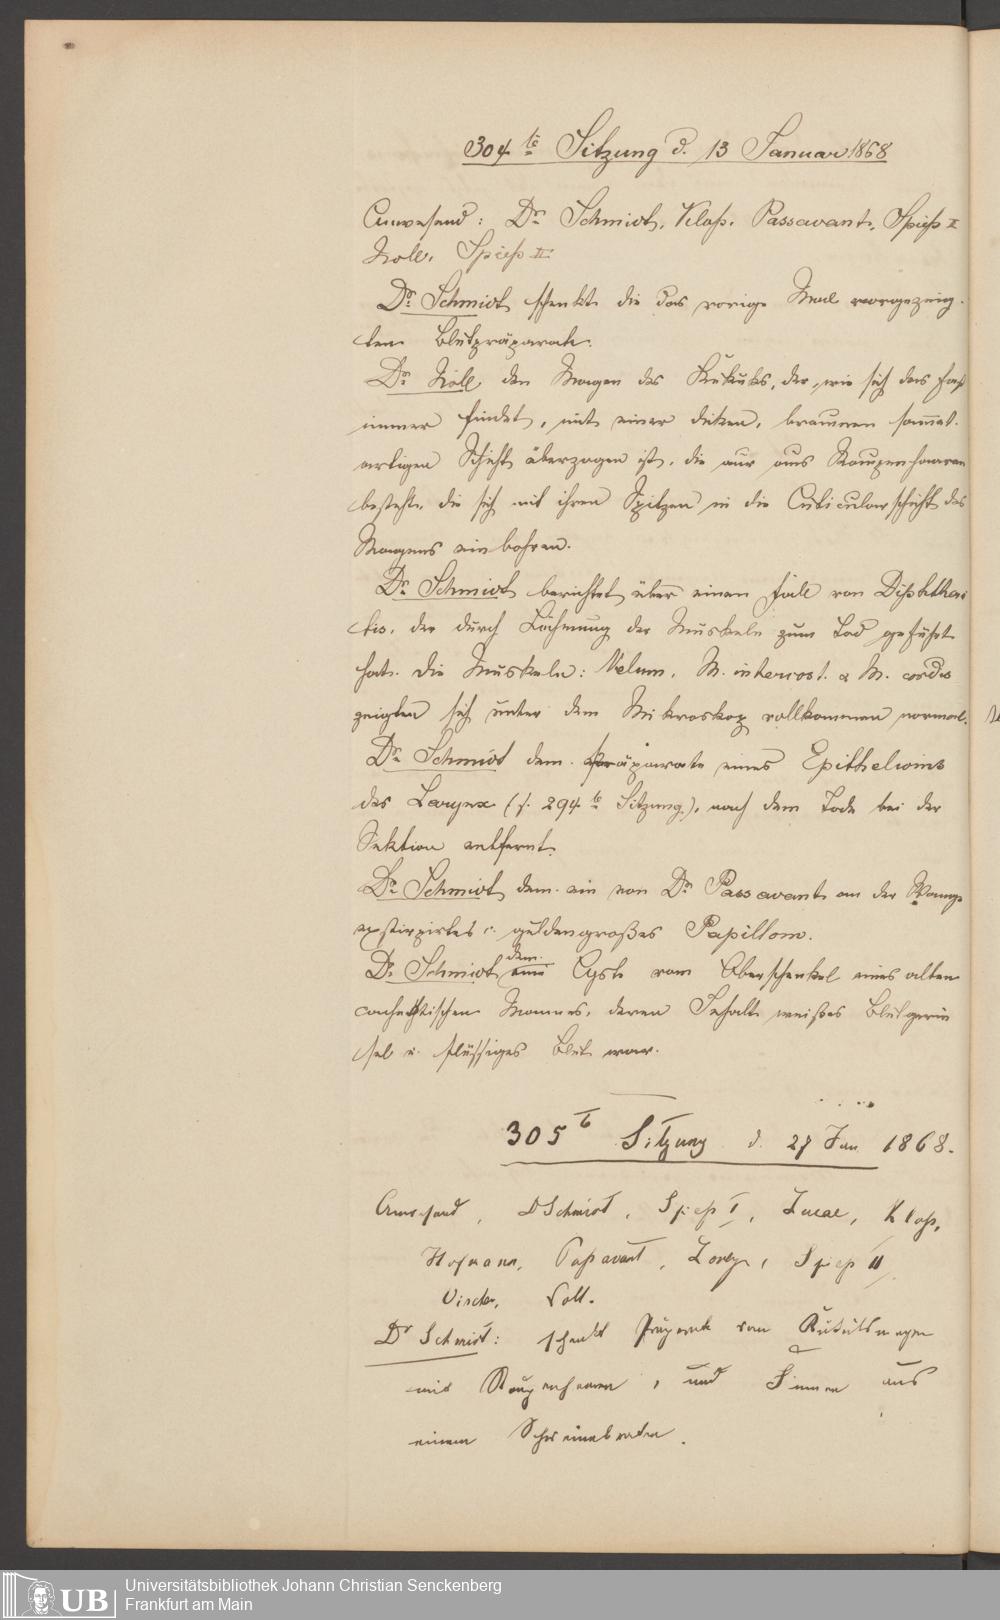 304te Sitzung d. 13 Januar 1868
Anwesend: Dr. Schmidt, Kloß, Passavant, Spieß I
Noll, Spieß II
Dr. Schmidt schenkt die das vorige Mal vorgezeig-
ten Blutpräparate.
Dr. Noll den Magen des Kukuks, der, wie sich das fast
immer findet, mit einer dicken, braunen sammet-
artigen Schicht überzogen ist, die nur aus Raupenhaaren
besteht, die sich mit ihren Spitzen in die Cuticularschicht des
Magens einbohren.
Dr. Schmidt berichtet über einen Fall von Diphtheri
tis, der durch Lähmung der Muskeln zum Tod geführt
hat. Die Muskeln: Velum, M. intercost. & M. cordis
zeigten sich unter dem Mikroskop vollkommen normal.
Dr. Schmidt dem. Präparate eines Epithelioms
des Larynx (s. 294te Sitzung), nach dem Tode bei der
Sektion entfernt.
Dr. Schmidt dem. ein von Dr. Passavant an der Wange
exstirpirtes guldengroßes Papillom.
Dr. Schmidt dem. eine Cyste vom Oberschenkel eines alten
cachektischen Mannes, deren Inhalt weißes Blutgerin
sel u. flüssiges Blut war.
305te Sitzung d. 27 Jan 1868.
Anwesend, DSchmidt, Spieß I, Lucae, Kloß,
Hofmann, Passavant, Lorey, Spieß II
Noll.
Dr Schmidt: schenkt Präparate von Kukuksmagen
mit Raupenhaaren, und Finnen aus
einem Schweinebraten.
Universitätsbibliothek Johann Christian Senckenberg
Frankfurt am Main
UB